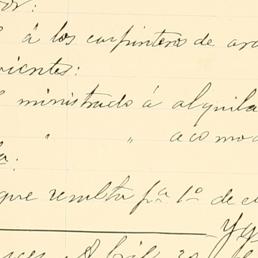 or:
á los carpinteros de
rientes:
ministrado á alquila
" " acomo
que resulta p.ª 1º de
Abril